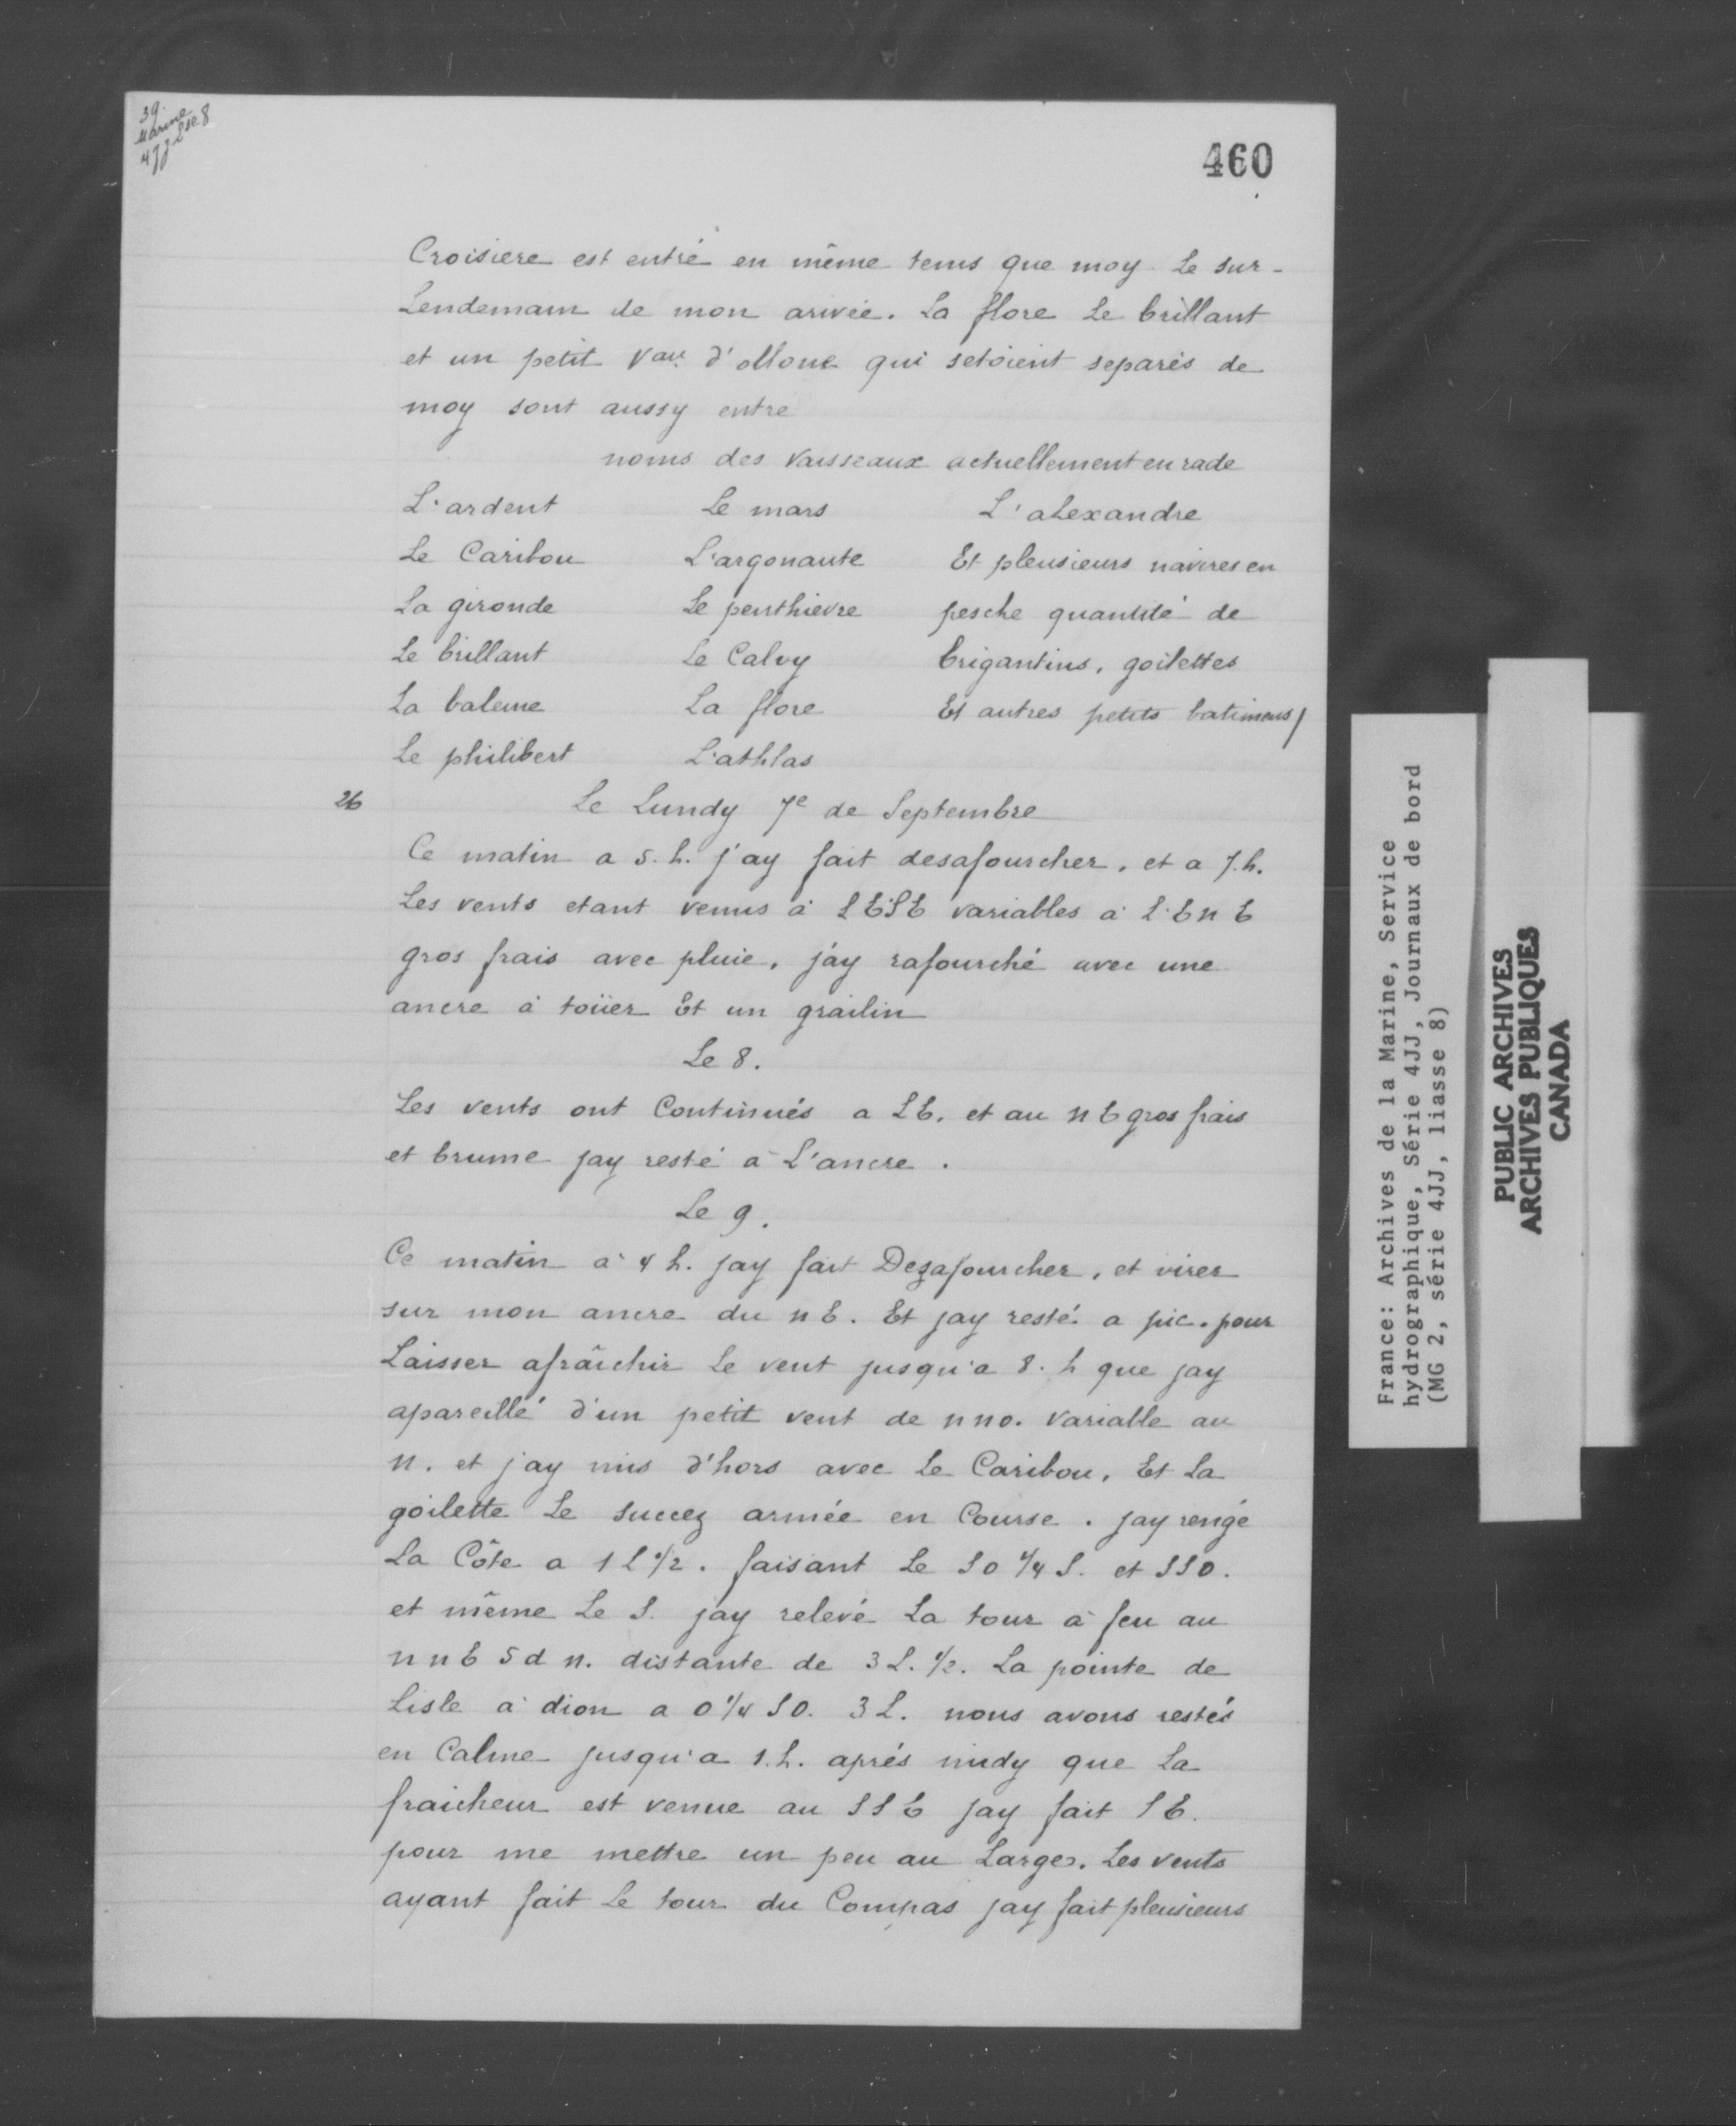 39.
Marine
4JJ Lse 8
460
Croisiere est entré en même tems que moy Le sur-
Lendemain de mon arivée. La flore Le brillant
et un petit Vau d'ollone qui setoient separés de
moy sont aussy entre
noms des Vaisseaux actuellement en rade
L'ardent Le mars L'aLexandre
Le Caribou L'argonaute Et pleusieurs navires en
La gironde Le penthievre pesche quantité de
Le brillant Le Calvy brigantins, goilettes
La baleine La flore Et autres petits batimens/
Le philibert L'athlas
26 Le Lundy 7e de Septembre
Ce matin a 5. h. j'ay fait desafourcher, et a 7. h.
Les vents etant venus à L'ESE variables à L'EnE
gros frais avec pluie, j'ay rafourché avec une
ancre à toüer Et un grailin
Le 8.
Les vents ont Continués a L'E. et au nE gros frais
et brume jay resté à L'ancre.
Le 9.
Ce matin à 4 h. jay fait Dezafourcher, et virer
sur mon ancre du nE. Et jay resté a pic. pour
Laisser afraîchir Le vent jusqu'a 8. h que jay
apareillé d'un petit vent de nno. variable au
n. et jay mis d'hors avec Le Caribou, Et La
goilette Le Succez armée en Course. jay rengé
La Côte a 1 L 1/2. faisant Le SO 1/4 S. et SSO.
et même Le S. jay relevé La tour à feu au
nnE 5 d n. distante de 3 L. 1/2. La pointe de
Lisle à dion a O 1/4 SO. 3 L. nous avons restés
en Calme jusqu'a 1. h. aprés midy que La
fraicheur est venue au SSE jay fait l'E.
pour me mettre un peu au Large. Les vents
ayant fait Le tour du Compas jay fait pleusieurs
France: Archives de la Marine, Service
hydrographique, Série 4JJ, Journaux de bord
(MG 2, série 4JJ, liasse 8)
PUBLIC ARCHIVES
ARCHIVES PUBLIQUES
CANADA